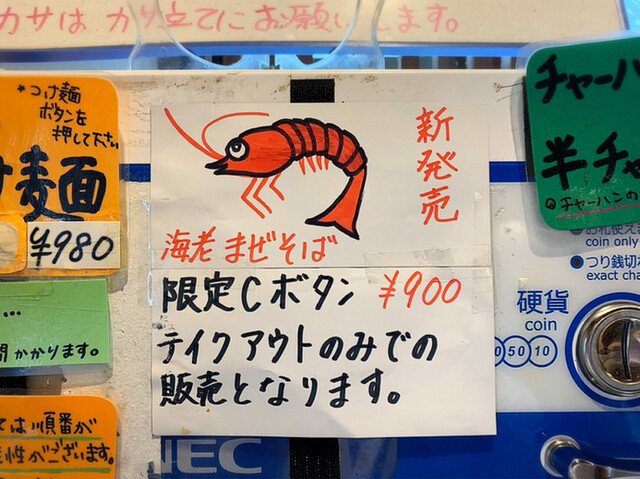 カサは カサ立てにお願いします。
*つけ麺
ボタンを
押して下さい
け麺
¥980
新発売
海老 まぜそば
限定Cボタン ¥900
テイクアウトのみでの
販売となります。
チャーハン
半チャ
◎チャーハンの
お札使え
coin only
●つり銭切れ
exact cha
硬貨
coin
50 10
間かかります。
ては順番が
性がございます。
NEC